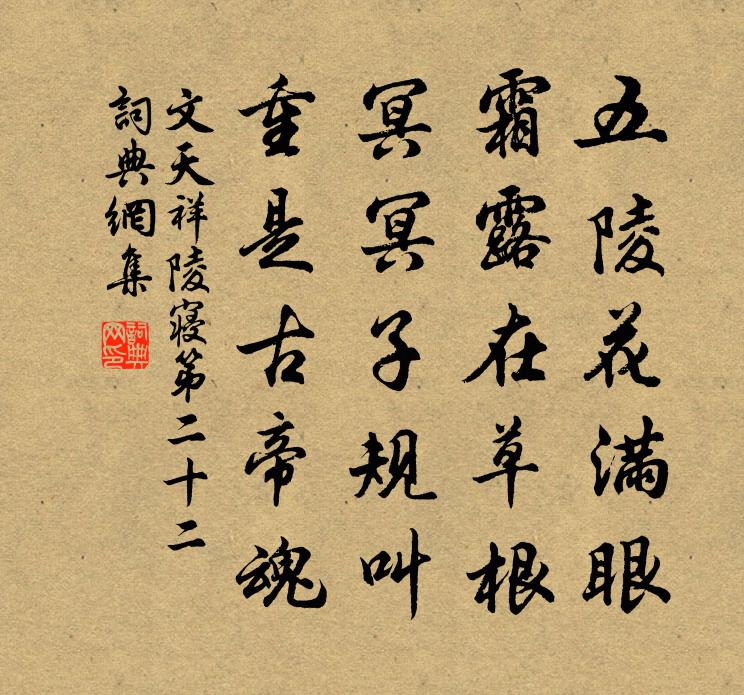 五陵花滿眼
霜露在草根
冥冥子規叫
重是古帝魂
文天祥陵寢第二十二
詞典網集
詞典網印